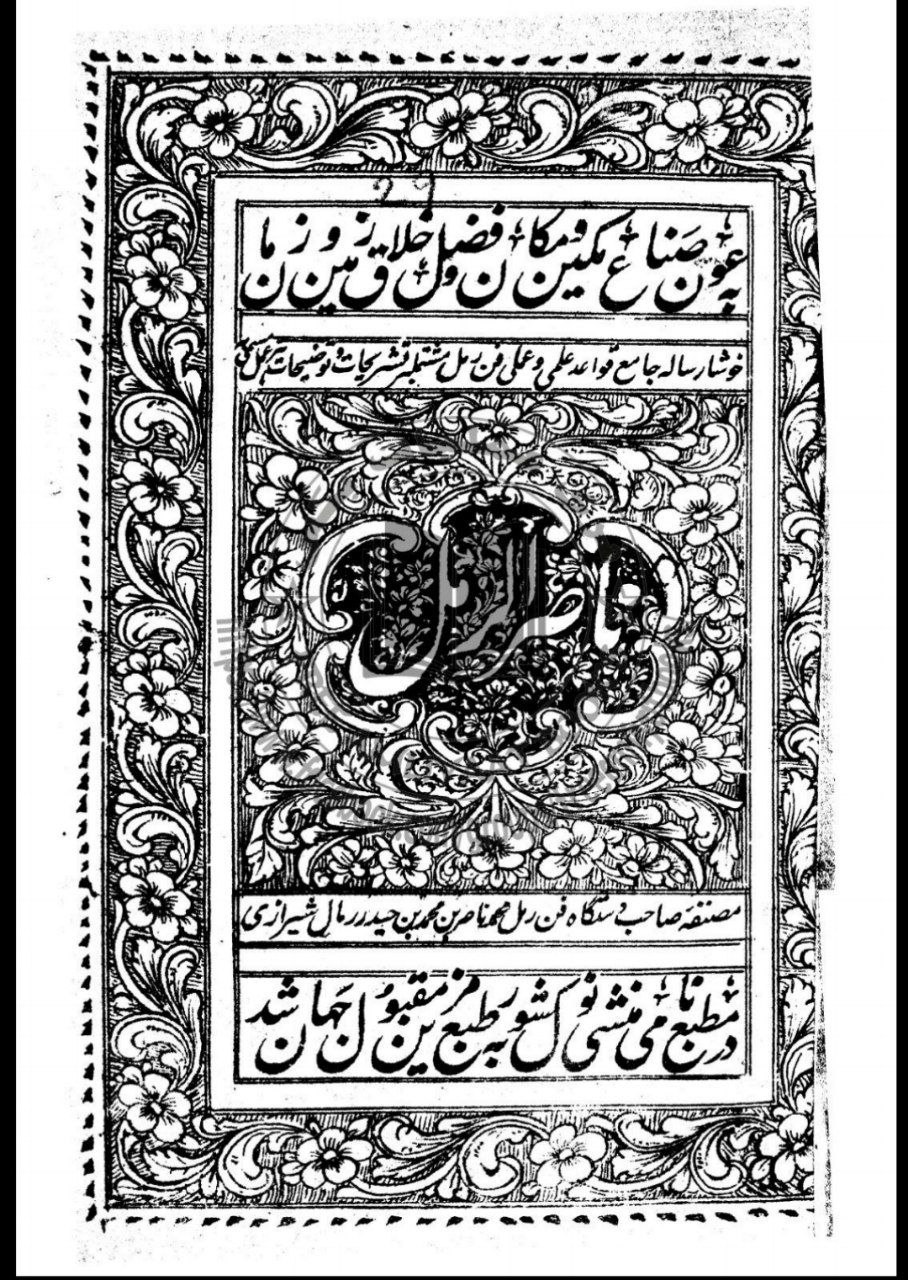 29
به عون صناع مکین و مکان و فضل خلاق زمین و زمان
خوشا رساله جامع قواعد علمی و عملی فن رمل مشتمله تشریحات و توضیحات عمل
ناصر الرمل
مصنفه صاحب دستگاه فن رمل محمد ناصر بن محمد بن حیدر رمال شیرازی
در مطبع نامی منشی نولکشور به طبع مزین مقبول جهان شد